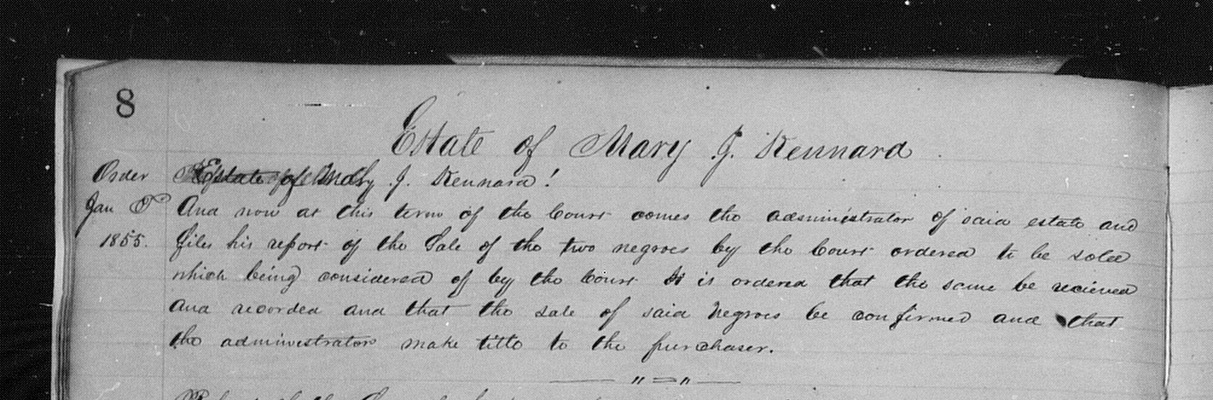 8
Estate of Mary J. Kennard
Order Estate of Mary J. Kennard!
Jan And now at this term of the Court comes the administrator of said estate and
1855. files his report of the Sale of the two negroes by the Court ordered to be sold
which being considered of by the Court It is ordered that the same be recieved
and recorded and that the sale of said Negroes be confirmed and that
the administrator make title to the purchaser.